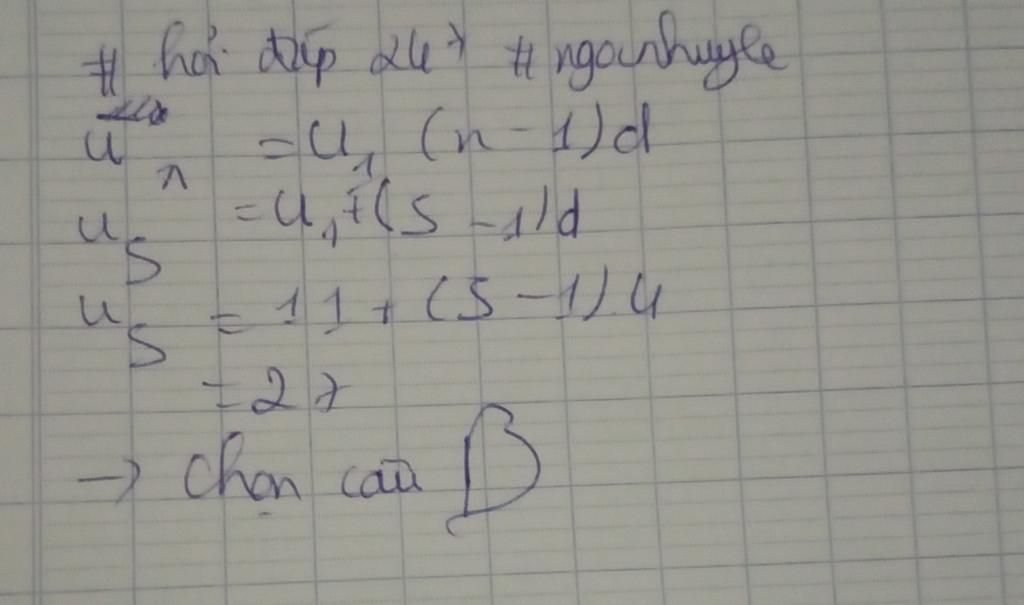 # hỏi đáp 247 #
u_n = u_1 (n - 1)d
u_5 = u_1 + (5 - 1)d
u_5 = 11 + (5 - 1).4
= 27
→ Chọn câu B